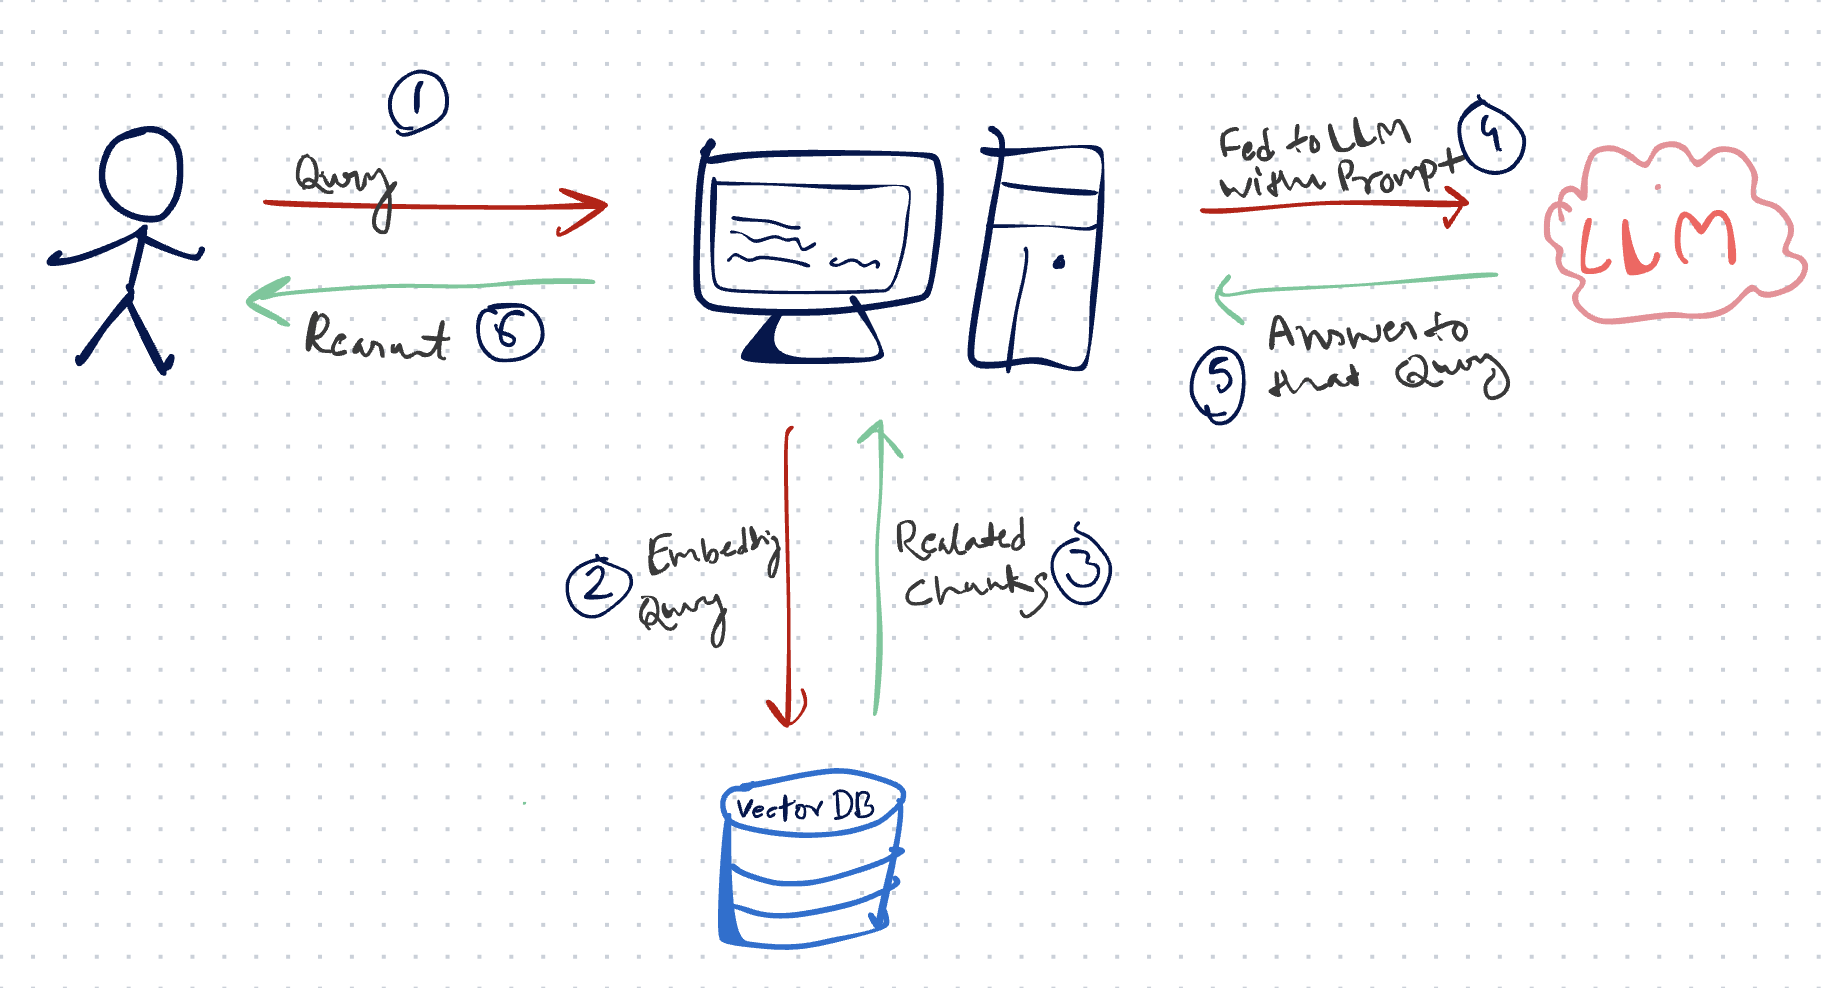 1
Query
Fed to LLM
with Prompt
4
LLM
6
5
Answer to
that Query
2
Embedding
Query
Realated
Chunks
3
Vector DB